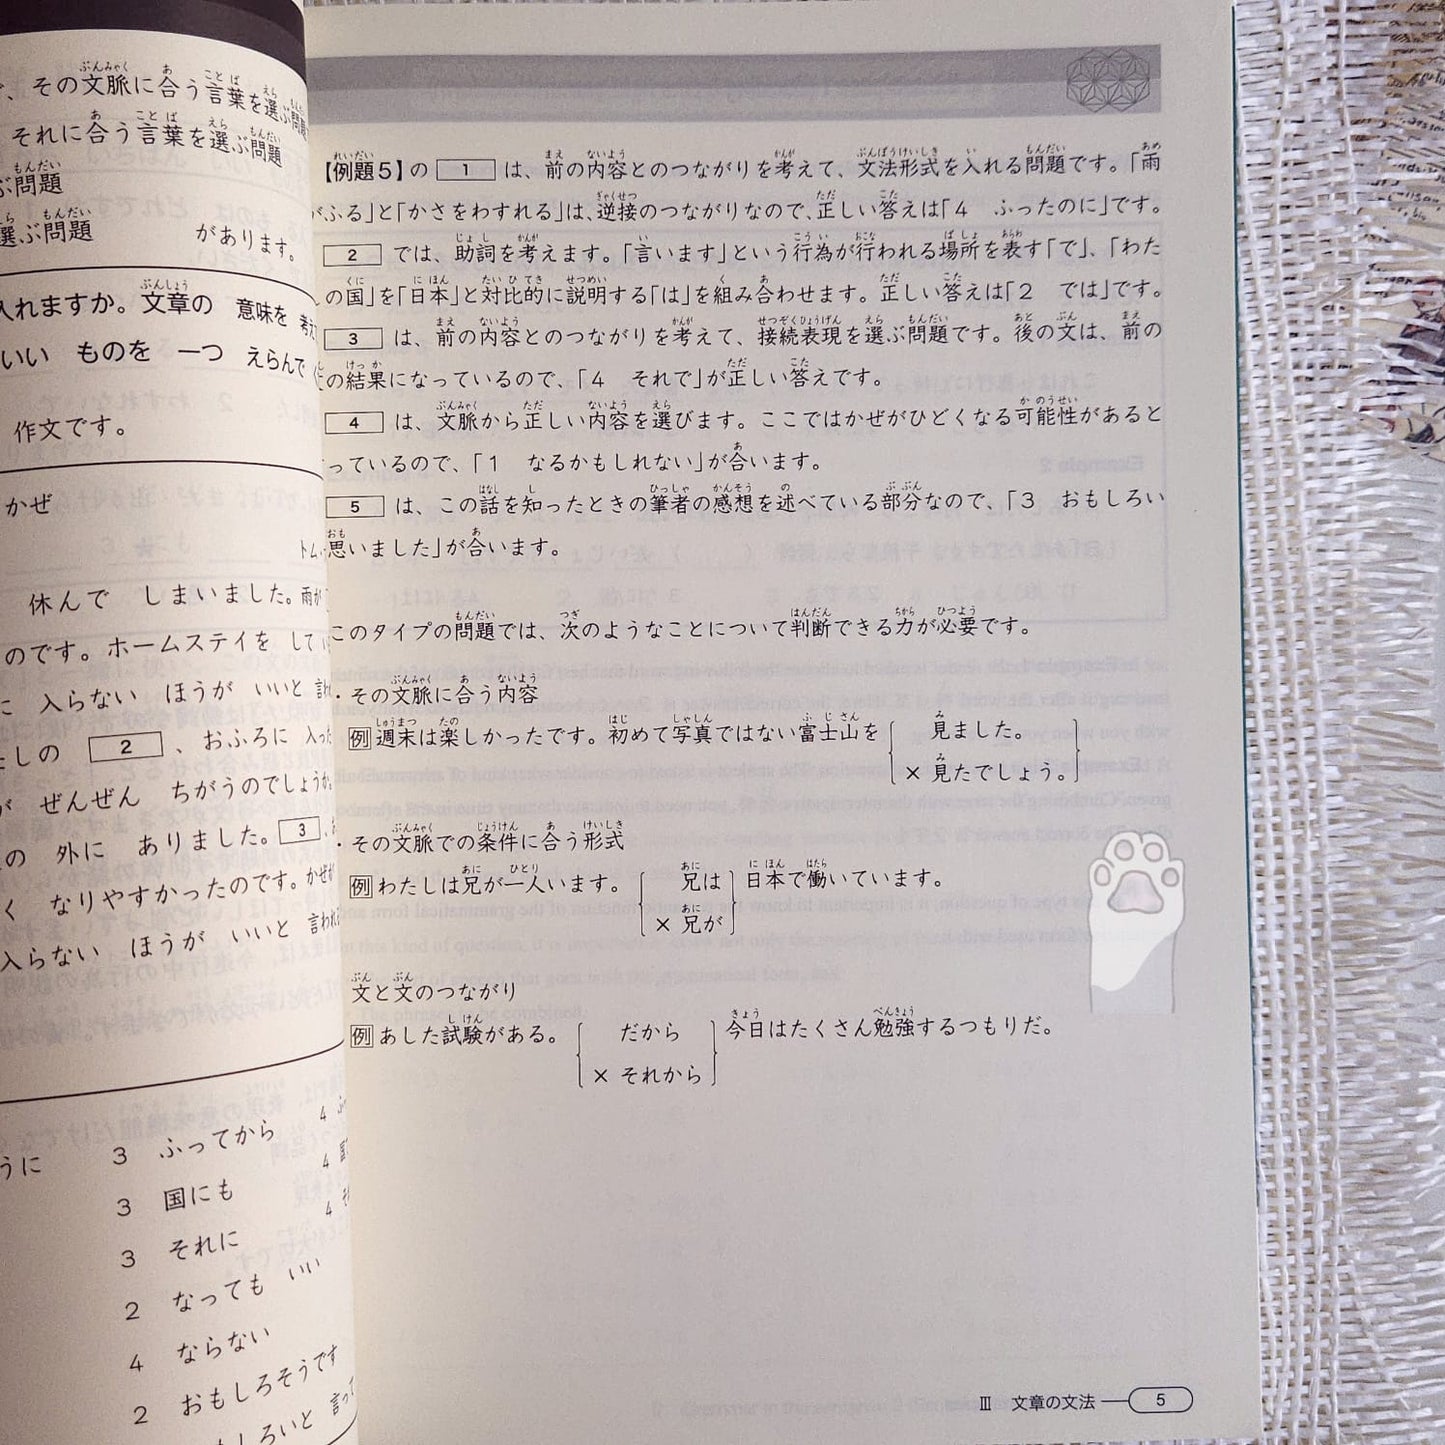 、その文脈に合う言葉を選ぶ問題
それに合う言葉を選ぶ問題
ぶ問題
選ぶ問題 があります。
入れますか。文章の 意味を 考え
いい ものを 一つ えらんで
作文です。
かぜ
休んで しまいました。雨が
のです。ホームステイを して
に 入らない ほうが いいと 言わ
たしの 2 、おふろに 入った
が ぜんぜん ちがうのでしょうか。
の 外に ありました。 3 、
く なりやすかったのです。かぜが
入らない ほうが いいと 言われ
うに 3 ふってから 4
3 国にも 4
3 それに 4
2 なっても いい
4 ならない
2 おもしろそうです
しろいと 言って
【例題5】の 1 は、前の内容とのつながりを考えて、文法形式を入れる問題です。「雨
がふる」と「かさをわすれる」は、逆接のつながりなので、正しい答えは「4 ふったのに」です。
2 では、助詞を考えます。「言います」という行為が行われる場所を表す「で」、「わた
しの国」を「日本」と対比的に説明する「は」を組み合わせます。正しい答えは「2 では」です。
3 は、前の内容とのつながりを考えて、接続表現を選ぶ問題です。後の文は、前の
の結果になっているので、「4 それで」が正しい答えです。
4 は、文脈から正しい内容を選びます。ここではかぜがひどくなる可能性があると
っているので、「1 なるかもしれない」が合います。
5 は、この話を知ったときの筆者の感想を述べている部分なので、「3 おもしろい
思いました」が合います。
このタイプの問題では、次のようなことについて判断できる力が必要です。
・その文脈に合う内容
例 週末は楽しかったです。初めて写真ではない富士山を { 見ました。
× 見たでしょう。 }
・その文脈での条件に合う形式
例 わたしは兄が一人います。 { 兄は } 日本で働いています。
× 兄が
文と文のつながり
例 あした試験がある。 { だから } 今日はたくさん勉強するつもりだ。
× それから
Ⅲ 文章の文法 5